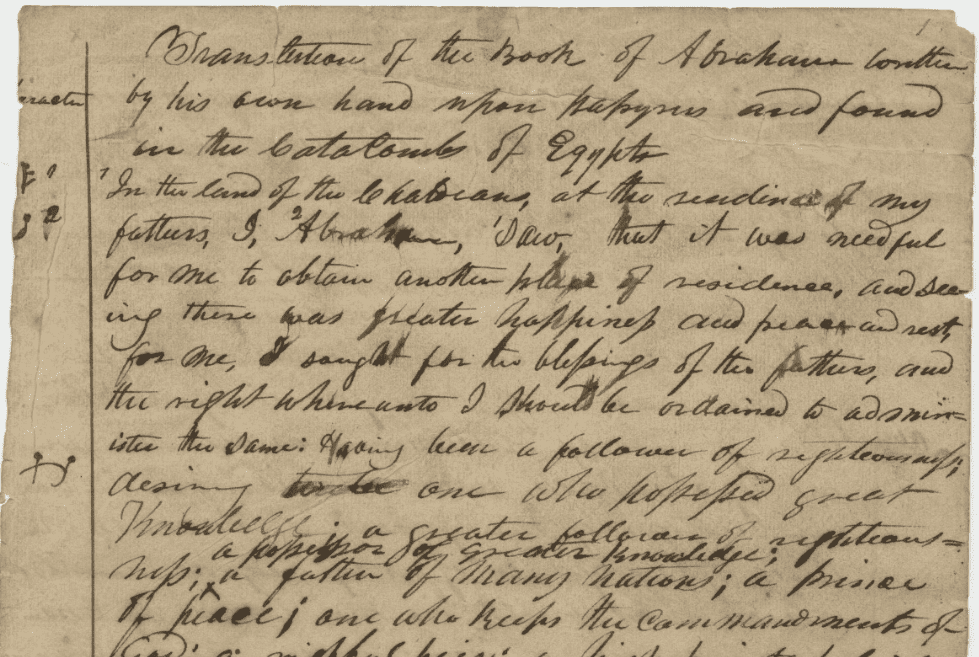 1
Translation of the Book of Abraham written
by his own hand upon papyrus and found
in the CataCombs of Egypts
1 In the land of the Chaldeans, at the residence of my
fathers, I, 2 Abraham, 1 Saw, that it was needful
for me to obtain another place of residence, and see
ing there was greater happiness and peace and rest,
for me, I sought for the blessings of the fathers, and
the right whereunto I should be ordained to admin=
ister the same: Having been a follower of righteousness;
desiring one who possessed great
Knowledge; a greater follower of righteous=
a possessor of greater Knowledge;
ness; a father of many nations; a prince
of peace; one who keeps the commandments of
God; a